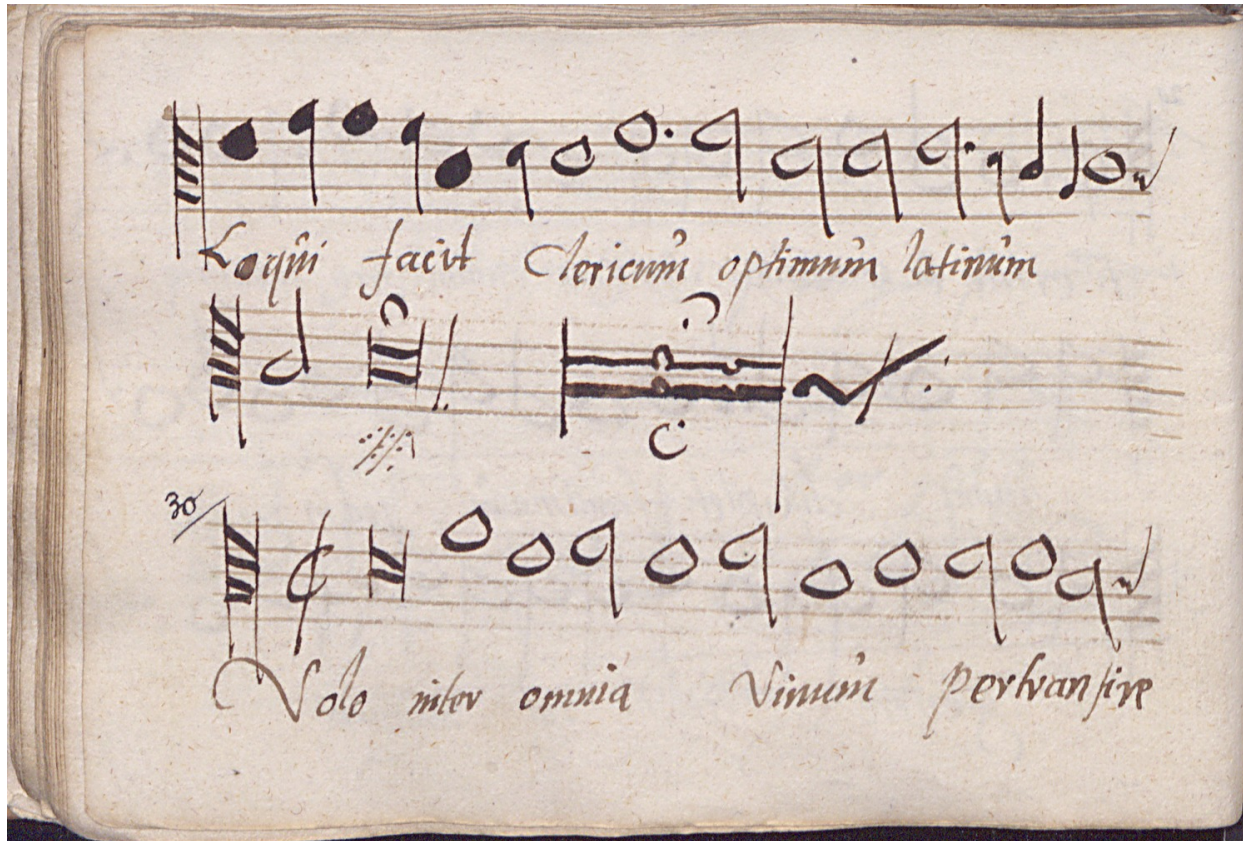 Loqui facit Clericum optimum latinum
30
Volo inter omnia Vinum pertransire